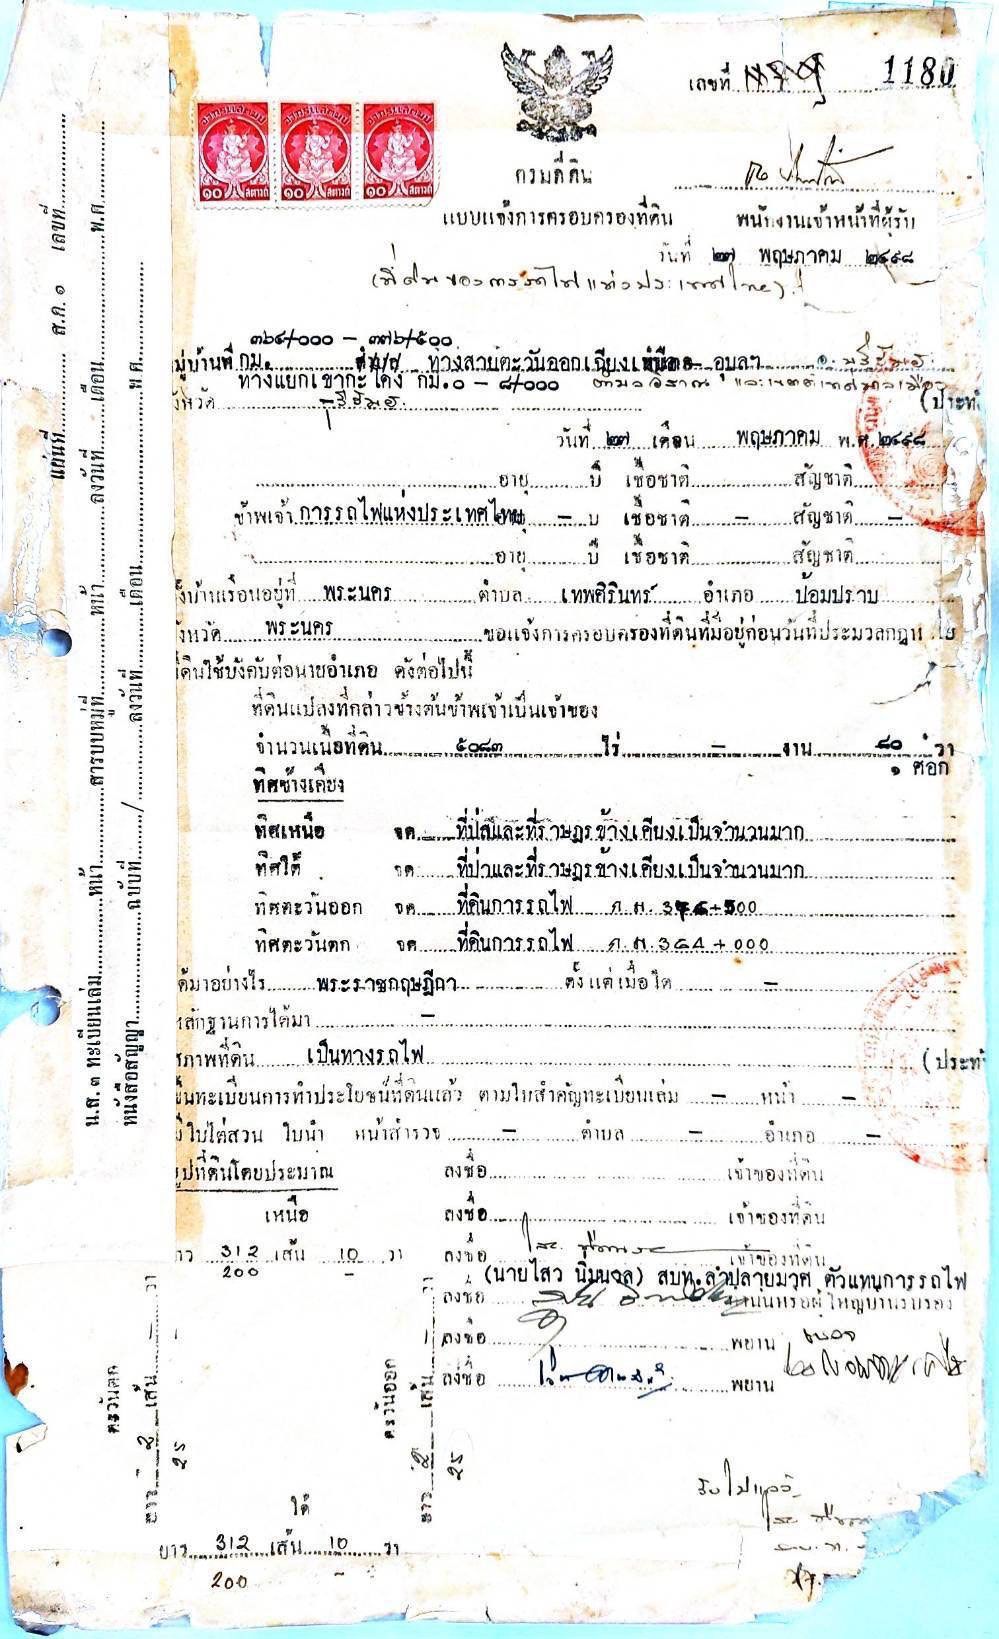 เลขที่ 1180
อากรแสตมป์ อากรแสตมป์ อากรแสตมป์
๑๐ สตางค์ ๑๐ สตางค์ ๑๐ สตางค์
กรมที่ดิน
แบบแจ้งการครอบครองที่ดิน พนักงานเจ้าหน้าที่ผู้รับ
วันที่ ๒๗ พฤษภาคม ๒๔๙๘
(ที่ดินของการรถไฟแห่งประเทศไทย)
๓๖๔/๐๐๐ – ๓๗๖/๕๐๐
หมู่บ้านที่ กม. ทางสายตะวันออกเฉียงเหนือ อุบลฯ อ. บุรีรัมย์
ทางแยกเขากะโดง กม.๐ – ๘/๐๐๐ ตำบลอิสาณ และเขตต์เทศบาลเมือง
จังหวัด บุรีรัมย์ (ประทั
วันที่ ๒๗ เดือน พฤษภาคม พ.ศ.๒๔๙๘
อายุ ปี เชื้อชาติ สัญชาติ
ข้าพเจ้า การรถไฟแห่งประเทศไทย – ป เชื้อชาติ – สัญชาติ –
อายุ ปี เชื้อชาติ สัญชาติ
ตั้งบ้านเรือนอยู่ที่ พระนคร ตำบล เทพศิรินทร์ อำเภอ ป้อมปราบ
จังหวัด พระนคร ขอแจ้งการครอบครองที่ดินที่มีอยู่ก่อนวันที่ประมวลกฎห
ที่ดินใช้บังคับต่อนายอำเภอ ดังต่อไปนี้
ที่ดินแปลงที่กล่าวข้างต้นข้าพเจ้าเป็นเจ้าของ
จำนวนเนื้อที่ดิน ๕๐๘๓ ไร่ – งาน ๘๐ วา
๑ ศอก
ทิศข้างเคียง
ทิศเหนือ จด ที่ป่าและที่ราษฎรข้างเคียงเป็นจำนวนมาก
ทิศใต้ จด ที่ป่าและที่ราษฎรข้างเคียงเป็นจำนวนมาก
ทิศตะวันออก จด ที่ดินการรถไฟ ก.ม. 376+500
ทิศตะวันตก จด ที่ดินการรถไฟ ก.ม. 364+000
ได้มาอย่างไร พระราชกฤษฎีกา ตั้งแต่เมื่อใด –
หลักฐานการได้มา –
สภาพที่ดิน เป็นทางรถไฟ (ประทั
ขึ้นทะเบียนการทำประโยชน์ที่ดินแล้ว ตามใบสำคัญทะเบียนเล่ม – หน้า –
มีใบไต่สวน ใบนำ หน้าสำรวจ – ตำบล – อำเภอ –
รูปที่ดินโดยประมาณ ลงชื่อ เจ้าของที่ดิน
เหนือ ลงชื่อ เจ้าของที่ดิน
ยาว 312 เส้น 10 วา ลงชื่อ เจ้าของที่ดิน
200 –
(นายไสว นิ่มนวล) สบท.ลำปลายมาศ ตัวแทนการรถไฟ
ลงชื่อ กำนันหรือผู้ใหญ่บ้านรับรอง
ลงชื่อ พยาน
ลงชื่อ พยาน
ตะวันตก
ยาว 2 เส้น – วา
25
ตะวันออก
ยาว 2 เส้น – วา
25
ใต้
ยาว 312 เส้น 10 วา
200 –
รับไปแล้ว
แผ่นที่ ส.ค. ๑ เลขที่
น.ส.๓ ทะเบียนเล่ม หน้า สารบบหมู่ที่ หน้า ลงวันที่ เดือน พ.ศ.
หนังสือสัญญา ฉบับที่ / ลงวันที่ เดือน พ.ศ.